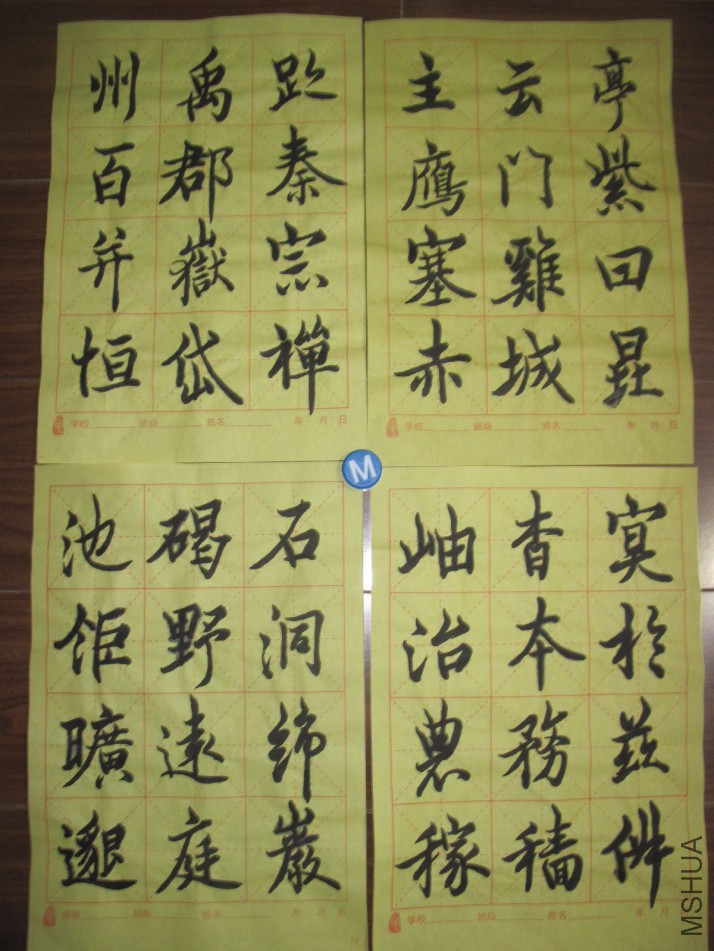 州禹跡
百郡秦
并嶽宗
恒岱禪
学校 班级 姓名 年 月 日
主云亭
鴈门紫
塞雞曰
赤城昆
学校 班级 姓名 年 月 日
M
池碣石
鉅野洞
曠遠綿
邈庭巖
学校 班级 姓名 年 月 日
岫杳冥
治本於
農務茲
稼穡俶
学校 班级 姓名 年 月
MSHUA